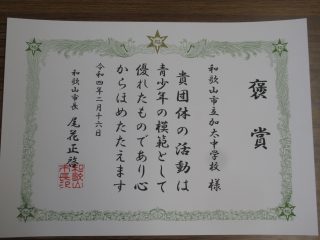 褒賞
和歌山市立加太中学校 様
貴団体の活動は
青少年の模範として
優れたものであり心
からほめたたえます
令和四年二月十六日
和歌山市長 尾花正啓